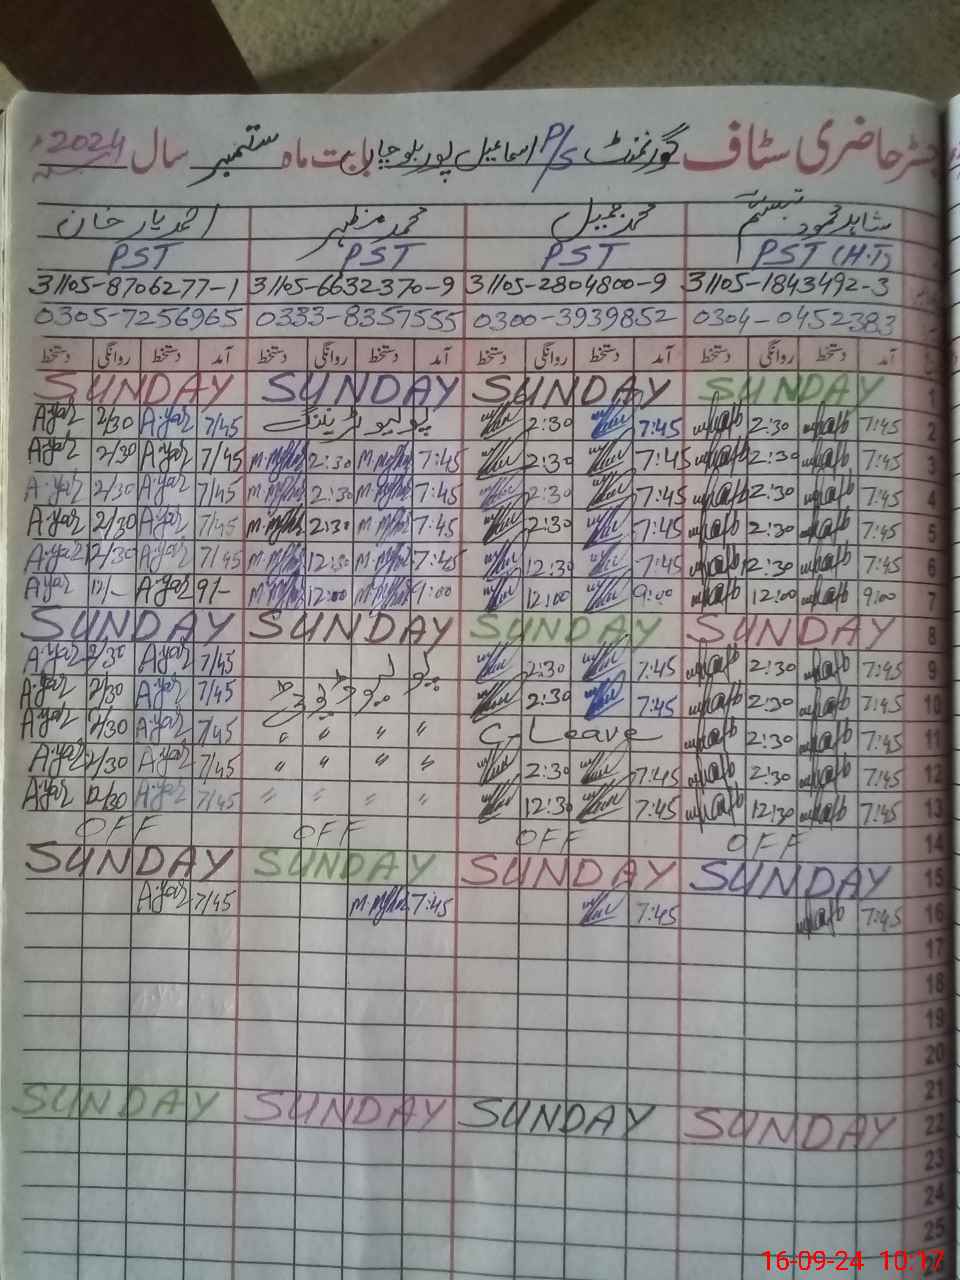 رجسٹر حاضری سٹاف گورنمنٹ P/S اسماعیل پور بلوچاں بابت ماہ ستمبر سال 2024ء
شاہد محمود تبسم محمد جمیل محمد مظہر احمد یار خان
PST (H.T) PST PST PST
31105-1843492-3 31105-2804800-9 31105-6632370-9 31105-8706277-1
0304-0452383 0300-3939852 0333-8357555 0305-7256965
آمد دستخط روانگی دستخط آمد دستخط روانگی دستخط آمد دستخط روانگی دستخط آمد دستخط روانگی دستخط
1 SUNDAY SUNDAY SUNDAY SUNDAY
2 7:45 2:30 7:45 2:30 پولیو ٹریننگ 7/45 A.yar 2/30 A.yar
3 7:45 2:30 7:45 2:30 7:45 2:30 7/45 A.yar 2/30 A.yar
4 7:45 2:30 7:45 2:30 7:45 2:30 7/45 A.yar 2/30 A.yar
5 7:45 2:30 7:45 2:30 7:45 2:30 7/45 A.yar 2/30 A.yar
6 7:45 12:30 7:45 12:30 7:45 12:30 7/45 A.yar 12/30 A.yar
7 9:00 12:00 9:00 12:00 9:00 12:00 9/- A.yar 12/- A.yar
8 SUNDAY SUNDAY SUNDAY SUNDAY
9 7:45 2:30 7:45 2:30 پولیو ڈیوٹی 7/45 A.yar 2/30 A.yar
10 7:45 2:30 7:45 2:30 7/45 A.yar 2/30 A.yar
11 7:45 2:30 C-Leave 〃 〃 〃 〃 7/45 A.yar 2/30 A.yar
12 7:45 2:30 7:45 2:30 〃 〃 〃 〃 7/45 A.yar 2/30 A.yar
13 7:45 12:30 7:45 12:30 〃 〃 〃 〃 7/45 A.yar 12/30 A.yar
14 OFF OFF OFF OFF
15 SUNDAY SUNDAY SUNDAY SUNDAY
16 7:45 7:45 7:45 7/45 A.yar
17
18
19
20
21
22 SUNDAY SUNDAY SUNDAY SUNDAY
23
24
25
16-09-24 10:17